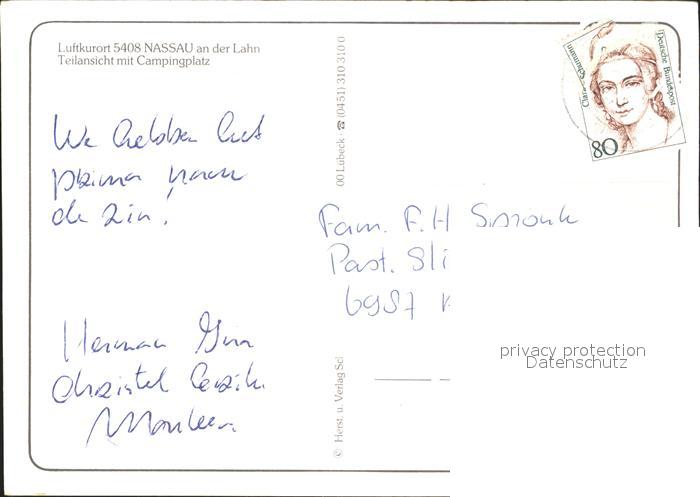 Luftkurort 5408 NASSAU an der Lahn
Teilansicht mit Campingplatz
We hebben het
prima naar
de zin!
Herman Gina
Christel
© Herst. u. Verlag Sc
00 Lübeck ☎ (0451) 310 310 0
Clara Schumann
Deutsche Bundespost
80
Fam. F.H
Past.
privacy protection
Datenschutz